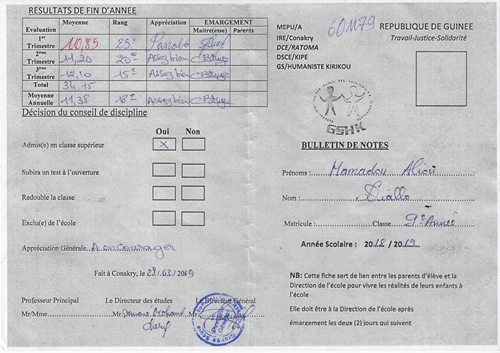 RESULTATS DE FIN D'ANNEE
Evaluation Moyenne Rang Appréciation EMARGEMENT
Maitre(esse) Parents
1er Trimestre 10,85 25e Passable
2ème Trimestre 11,20 20e Assez bien
3ème Trimestre 12,10 15e Assez bien
Total 34,15
Moyenne Annuelle 11,38 18e Assez bien
Décision du conseil de discipline
Oui Non
Admis(e) en classe supérieur X
Subira un test à l'ouverture
Redouble la classe
Exclu(e) de l'école
Appréciation Générale A encourager
Fait à Conakry, le 2019
Professeur Principal Le Directeur des études Le Directeur Général
Mr/Mme. Mr
MEPU/A
IRE/Conakry
DCE/RATOMA
DSCE/KIPE
GS/HUMANISTE KIRIKOU
601179
REPUBLIQUE DE GUINEE
Travail-Justice-Solidarité
GSHK
BULLETIN DE NOTES
Prénoms : Mamadou Aliou
Nom : Diallo
Matricule : Classe 9e Année
Année Scolaire : 2018 / 2019
NB: Cette fiche sert de lien entre les parents d'élève et la
Direction de l'école pour vivre les réalités de leurs enfants à
l'école
Elle doit être à la Direction de l'école après
émargement les deux (2) jours qui suivent